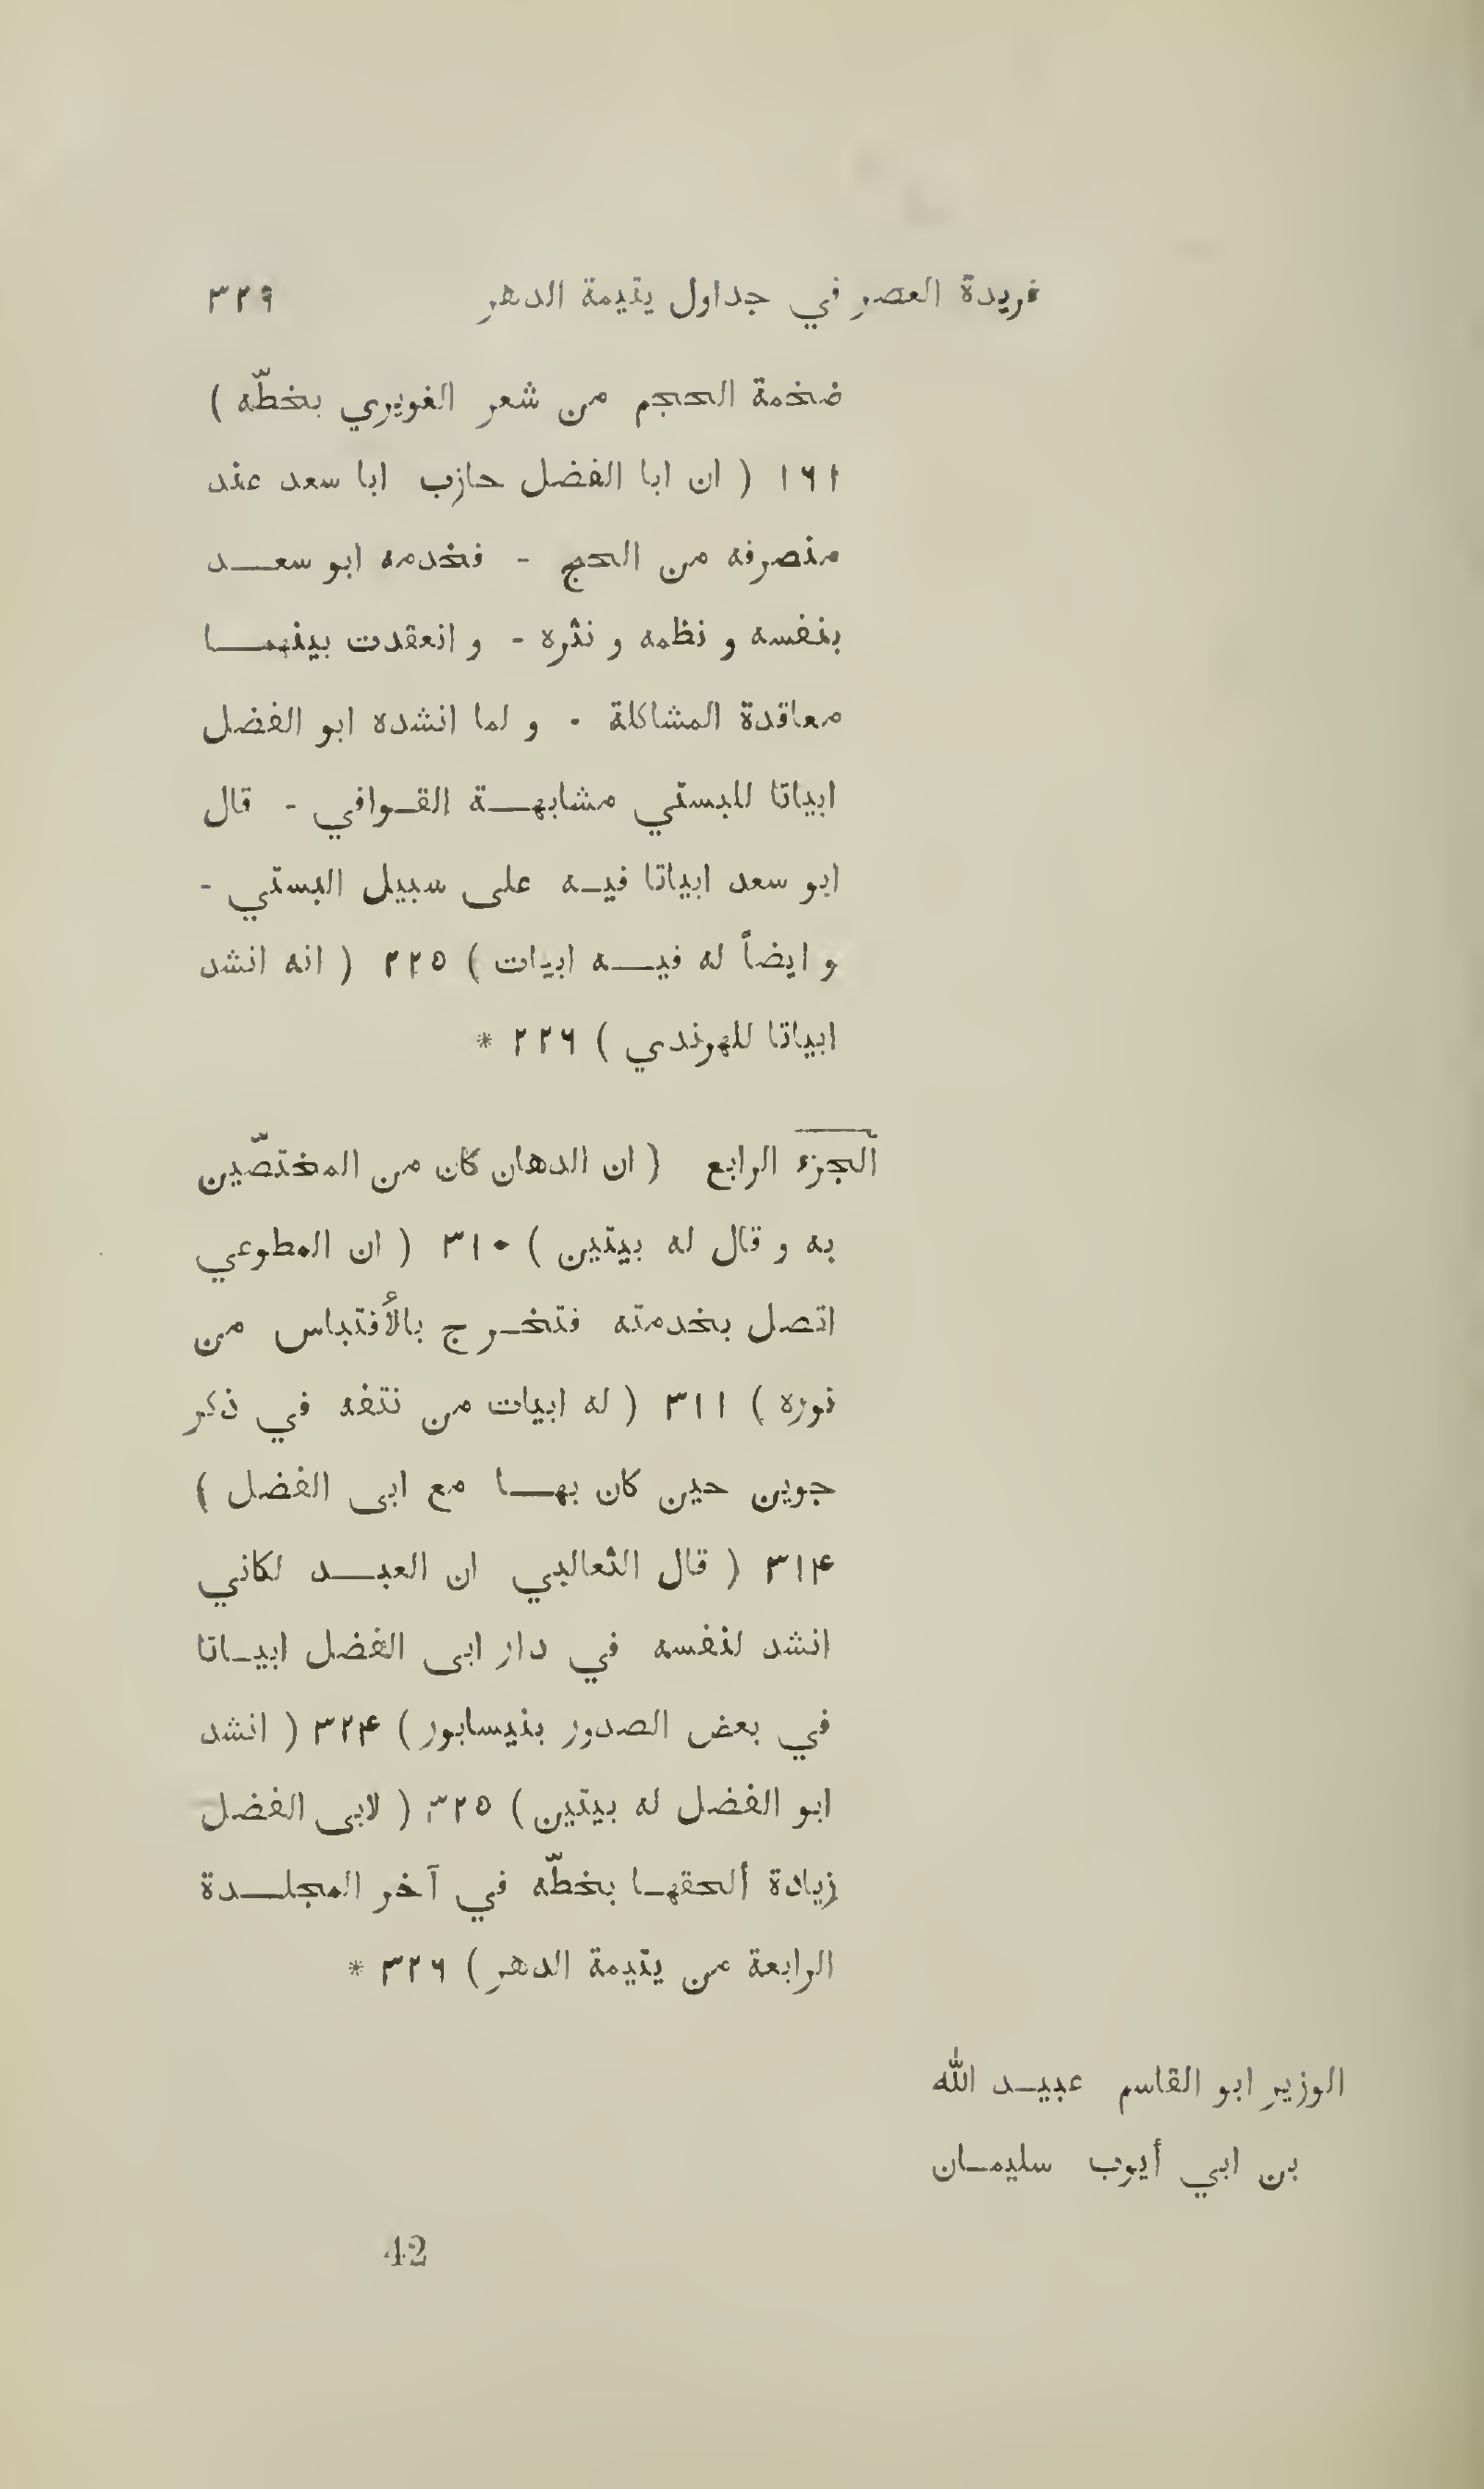 فريدة العصر في جداول يتيمة الدهر ٣٢٩
ضخمة الحجم من شعر الغويري بخطّه )
١٦١ ( ان ابا الفضل حازب ابا سعد عند
منصرفه من الحج - فخدمه ابو سعد
بنفسه و نظمه و نثره - و انعقدت بينهما
معاقدة المشاكلة - و لما انشده ابو الفضل
ابياتا للبستي مشابهة القوافي - قال
ابو سعد ابياتا فيه على سبيل البستي -
و ايضاً له فيه ابيات ) ٢٢٥ ( انه انشد
ابياتا للهرندي ) ٢٢٦ *
الجزء الرابع ( ان الدهان كان من المختصّين
به و قال له بيتين ) ٣١٠ ( ان المطوعي
اتصل بخدمته فتخرج بالأفتباس من
نوره ) ٣١١ ( له ابيات من نتفه في ذكر
جوين حين كان بها مع ابى الفضل )
٣١۴ ( قال الثعالبي ان العبد لكاني
انشد لنفسه في دار ابى الفضل ابياتا
في بعض الصدور بنيسابور ) ٣٢۴ ( انشد
ابو الفضل له بيتين ) ٣٢٥ ( لابى الفضل
زيادة ألحقها بخطّه في آخر المجلدة
الرابعة من يتيمة الدهر ) ٣٢٦ *
الوزير ابو القاسم عبيد الله
بن ابي أيوب سليمان
42